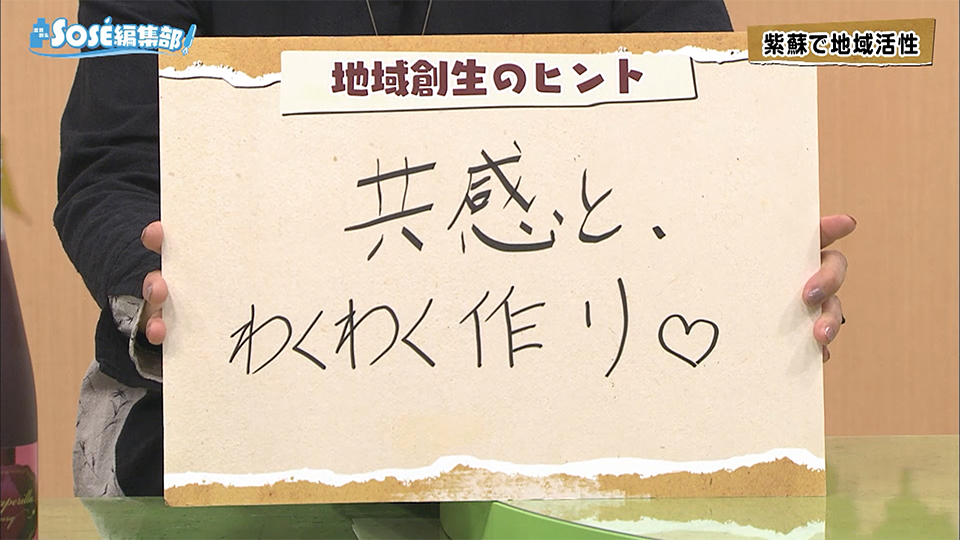 SOSÉ編集部!
紫蘇で地域活性
地域創生のヒント
共感と、
わくわく作り♡